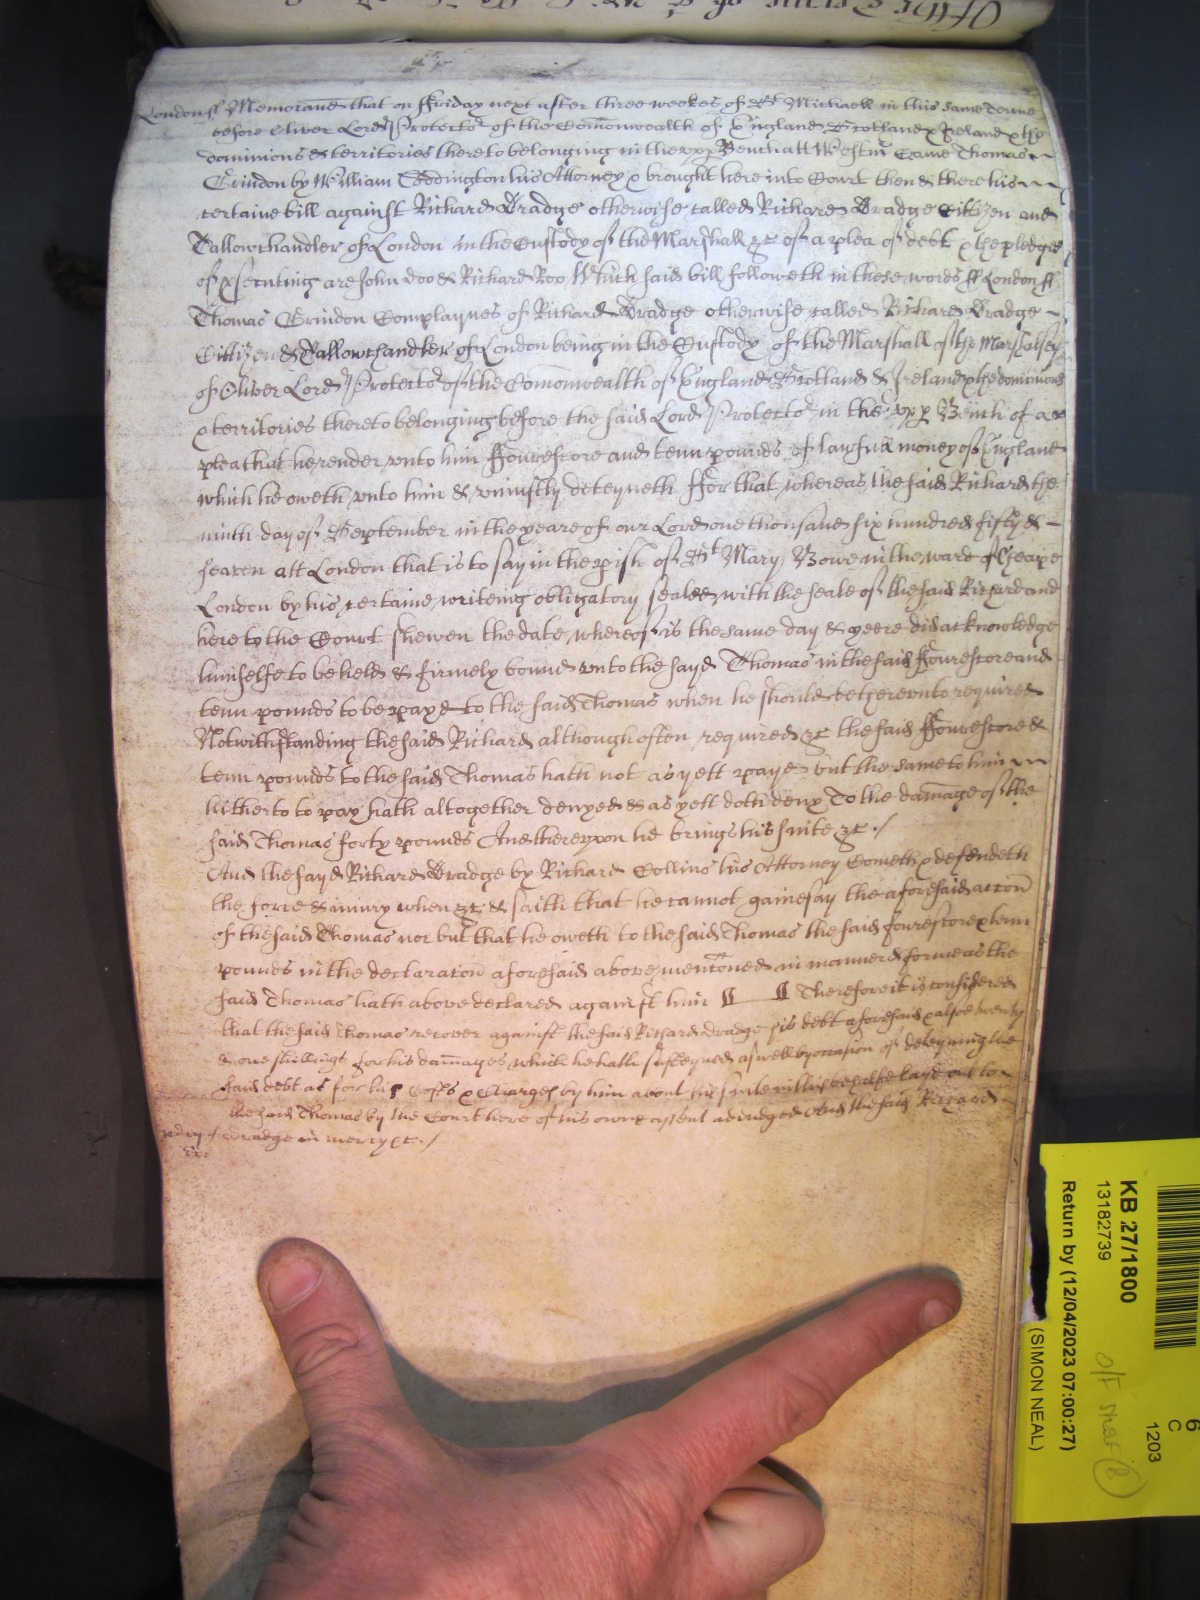 London ss Memorand that on ffriday next after three weekes of St Michaell in this same Terme
before Oliver Lord Protector of the Comonwealth of England Scotland & Ireland & the
dominions & territories thereto belonging in the upp Bench att Westmr Came Thomas
Crindon by William Toddington his Attorney & brought here into Court then & there his
certaine bill against Richard Dradge otherwise called Richard Dradge Cittizen and
Tallowchandler of London in the Custody of the Marshall &c of a plea of debt & the pledges
of p'secuting are John doo & Richard Roo Which said bill followeth in these words ss London ss
Thomas Crindon Complaynes of Richard Dradge otherwise called Richard Dradge
Cittizen & Tallowchandler of London being in the Custody of the Marshall of the Marshalsey
of Oliver Lord Protector of the Comonwealth of England Scotland & Ireland & the dominions
& territories thereto belonging before the said Lord Protector in the upp Bench of a
plea that he render unto him ffourescore and tenn pounds of lawfull money of England
which he oweth unto him & uniustly deteyneth ffor that whereas the said Richard the
ninth day of September in the yeare of our Lord one thousand six hundred fifty &
seaven att London that is to say in the pish of St Mary Bowe in the ward of Cheape
London by his certaine writeing obligatory sealed with the seale of the said Richard and
here to the Court shewen the date whereof is the same day & yeere did acknowledge
himselfe to be held & firmely bound unto the sayd Thomas in the said ffourescore and
tenn pounds to be payd to the said Thomas when he should be thereunto required
Notwithstanding the said Richard although often required &c the said ffourescore &
tenn pounds to the said Thomas hath not as yett payd but the same to him
hitherto to pay hath altogether denyed & as yett doth deny To the damage of the
said Thomas forty pounds And thereupon he brings his suite &c ./
And the sayd Richard Dradge by Richard Collins his Attorney Cometh & defendeth
the force & iniury when &c & saith that he cannot gainesay the aforesaid accon
of the said Thomas nor but that he oweth to the said Thomas the said fourescore & tenn
pounds in the declaracon aforesaid above menconed in manner & forme as the
said Thomas hath above declared against him Therefore it is considered
that the said Thomas recover against the said Richard Dradge his debt aforesaid & alsoe twenty
& one shillings for his damages which he hath susteyned aswell by occasion of deteyning the
said debt as for his Costs & Charges by him about his suite in this behalfe layd out to
the said Thomas by the Court here of his owne assent adiudged And the said Richard
Dradge in mercy &c ./
KB 27/1800
13182739
Return by (12/04/2023 07:00:27)
(SIMON NEAL)
6
C
1203